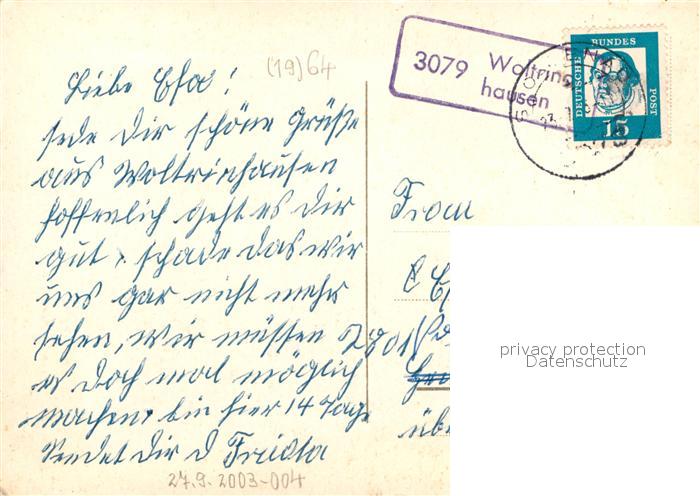 (19)64
Liebe Esa!
sede Dir schöne Grüße
aus Woltrinhausen
hoffenlich geht es Dir
gut, schade das wir
uns gar nicht mehr
sehen, wir müssen
es doch mal möglich
machen, bin hier 14 Tage
Sendet Dir d Frieda
27.9.2003-004
3079 Woltrins
hausen
DEUTSCHE BUNDES POST
15
Frau
2801
übe
privacy protection
Datenschutz